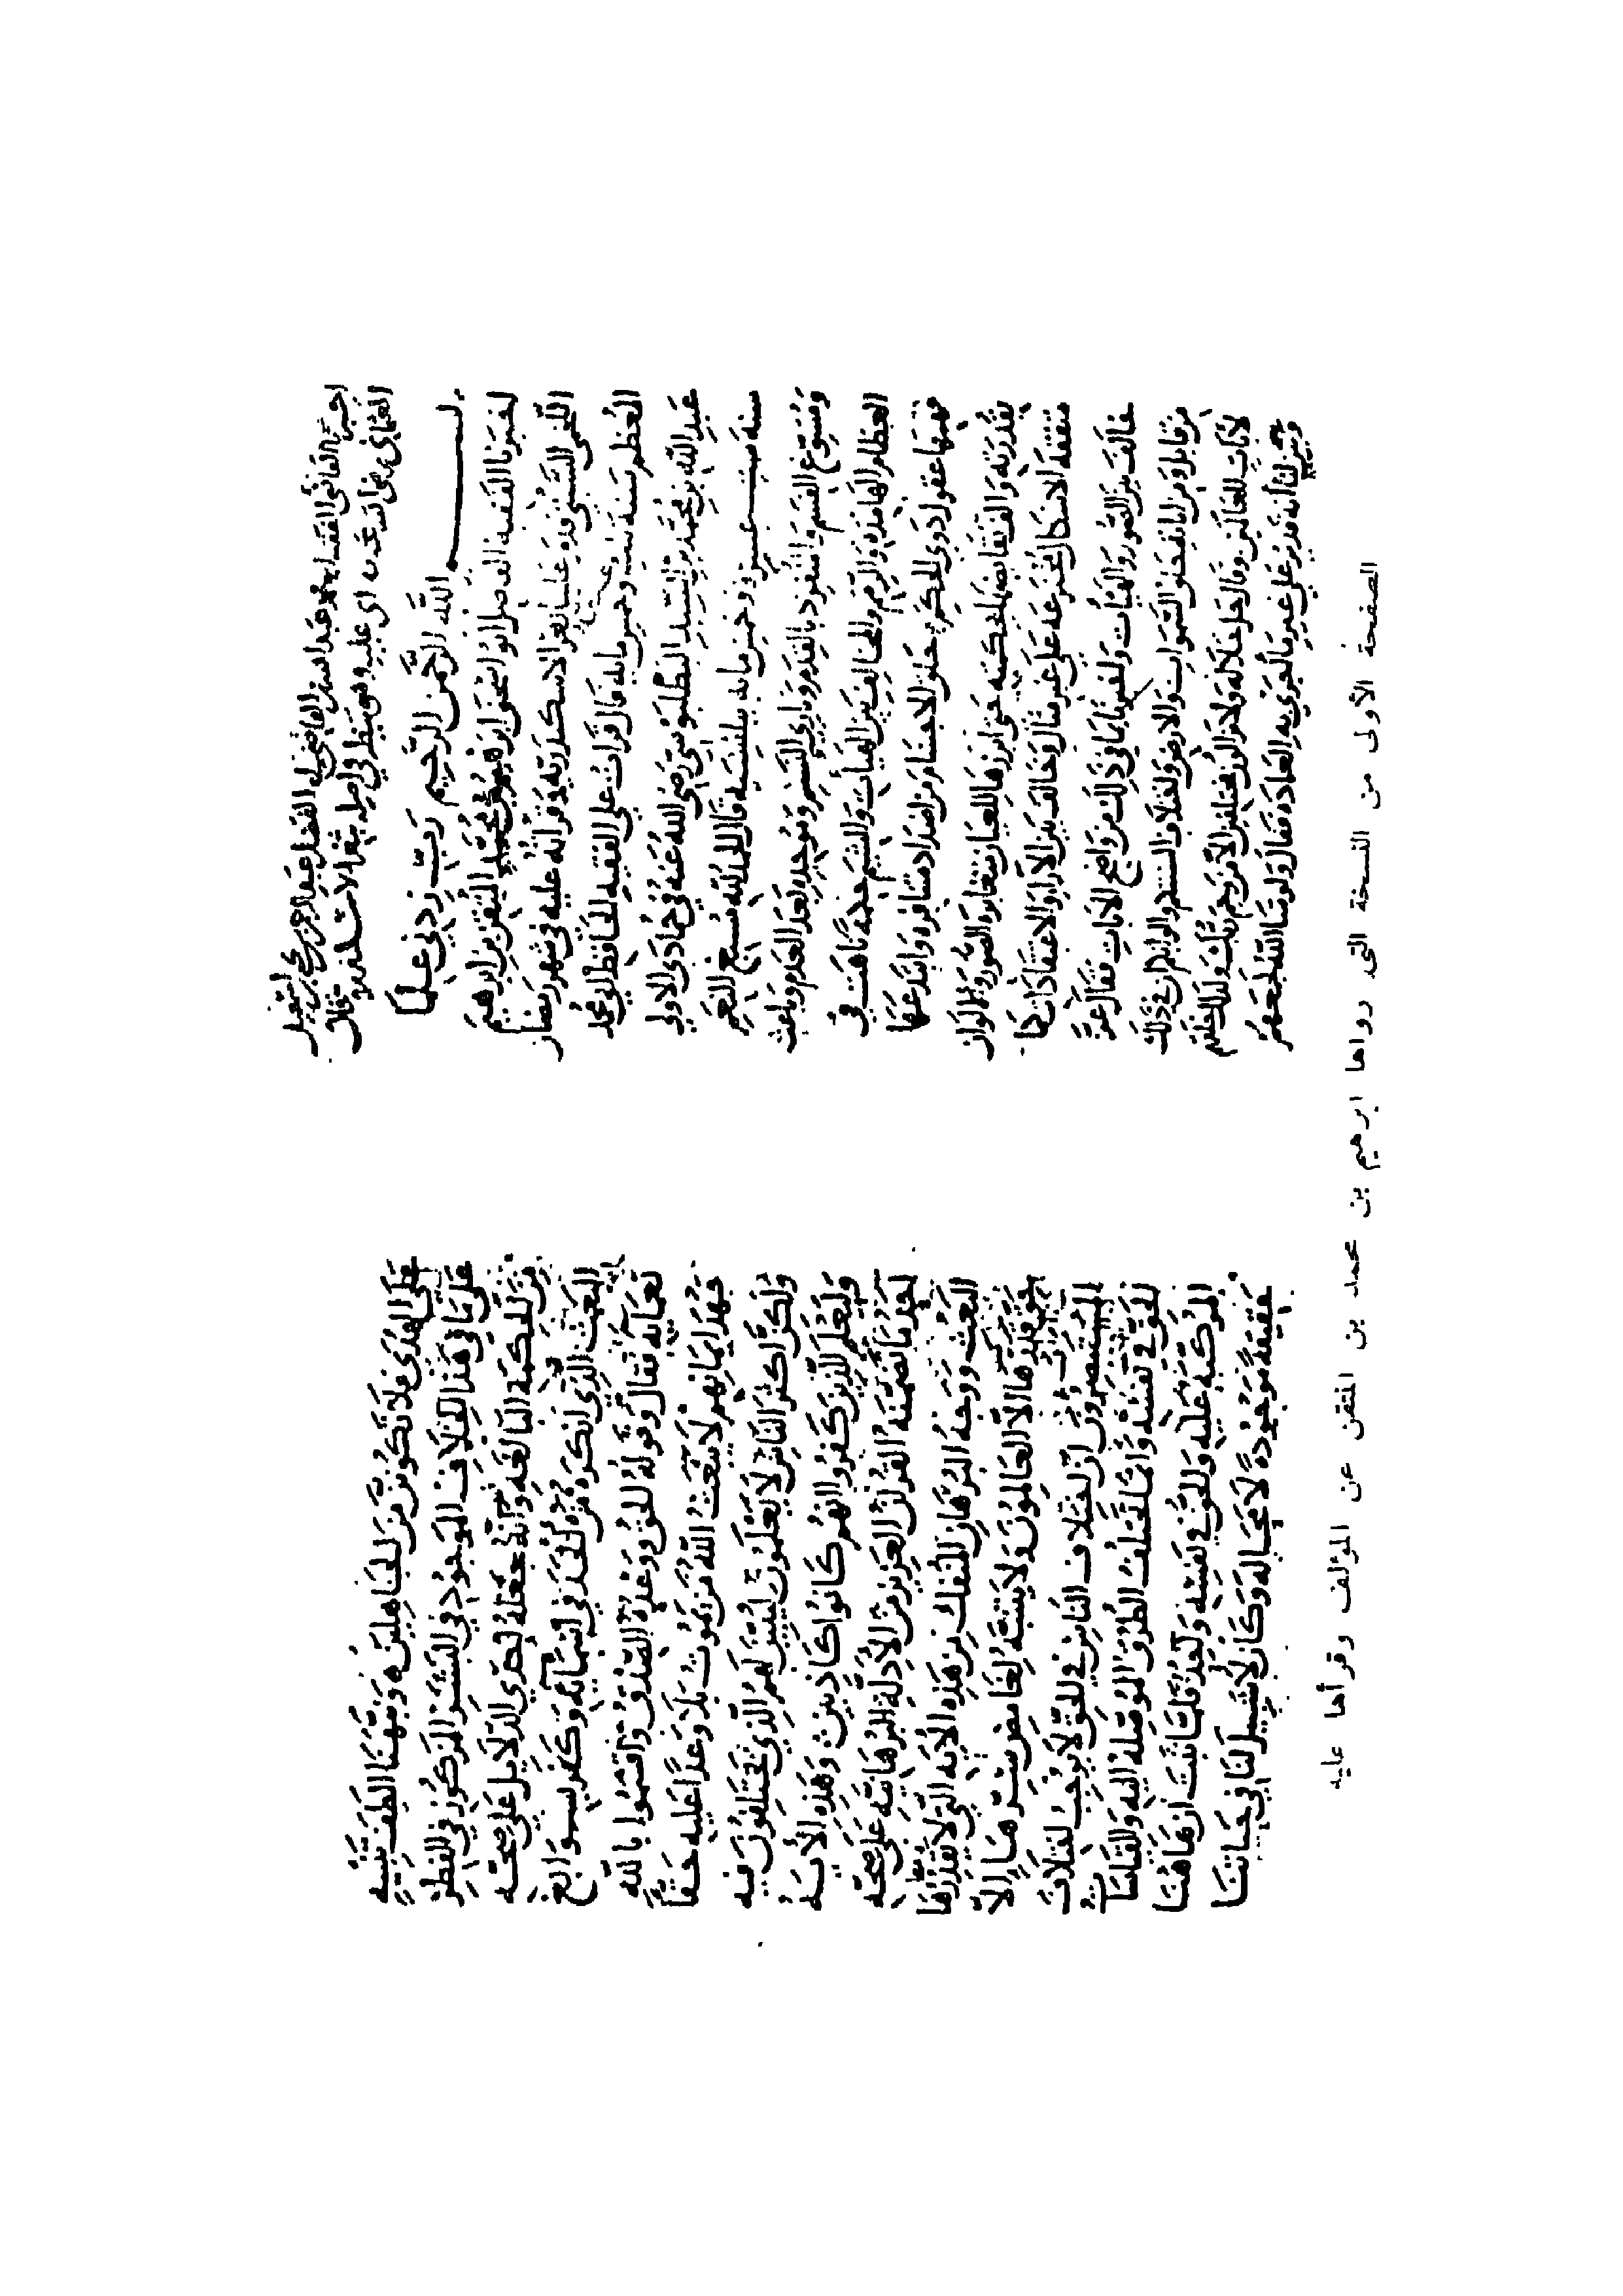 الله الرَّحمن الرَّحيم رَبّ زدني علما
اخبرنا الفقيه الفاضل ابو اسحق ابرهيم بن محمد المتقن بن ابرهيم
اللخمي السَّبْتي قدم علينا ثغر الاسكندرية قرأته عليه في شهر رمضان
المعظم سنة وخمس مايه قال قرأت على الفقيه الحافظ ابي محمد
عبد الله بن محمد بن السيد البطليوسي رضي الله عنه في جمادى الاولى
سنة ست عشرة وخمس مايه ببلنسية قال الحمد لله مسبغ النعم
ومسوغ القسم المتفرد بالقدم وبارئ النسم وموجد بعد العدم وباعث
العظام الهامدة والرمم والمخالف بين الهيأت والشيم حكمة تاهت في
فهمها عقول ذوي الحكم خلق الاجسام من اضداد متنافرة وابتدعها
بقدرته والف نقايضها بحكمته حتى ابرزها للعيان متغايرة الصور والالوان
متفقة الاشكال مخترعة على غير مثال وخالف بين الآراء والاعتقادات كما
خالف بين الصور والهيئات ولفتنا بما في ذلك من واضح الآيات فقال عز
من قائل ومن اياته خلق السموات والارض واختلاف السنتكم والوانكم ان في ذلك
لآيات للعالمين وقال جل جلاله ولا يزالون مختلفين الا من رحم ربك ولذلك خلقهم
وبين لنا أنه قدير على غير ما أجرى به العادة فقال ولو شا الله لجمعهم
على الهدى فلا تكونن من الجاهلين ونبهنا الطف تنبيه
على ما في هذا الخلاف الموجود في البشر المركوز في الفطر
من الحكمة البالغة وانه جعله احدى الدلايل على صحة
البعث الذي انكره من الحد في اسمائه وكفر بسوابغ
نعمايه فقال وقوله الحق ووعده الصدق واقسموا بالله
جهد ايمانهم لا يبعث الله من يموت بلى وعدا عليه حقا
ولكن اكثر الناس لا يعلمون ليبين لهم الذي يختلفون فيه
وليعلم الذين كفروا انهم كانوا كاذبين وهذه الآية
احد ما تضمنه القرآن العزيز من الأدلة البرهانية على صحة
البعث ووجه البرهان المنفك من هذه الآية التي لا يقدرها
حق قدرها الا العالمون ولا يتنبه لغامض سرها الا
المستبصرون ان اختلاف الناس في الحق لا يوجب اختلاف
الحق في نفسه وانما تختلف الطرق الموصلة اليه والقياسات
المركبة عليه والحق في نفسه واحد فلما ثبت ان هاهنا
حقيقة موجودة لا محالة وكان لا سبيل لنا في حياتنا
الصفحة الأولى من النسخة التي رواها ابرهيم بن محمد بن المتقن عن المؤلف وقرأها عليه